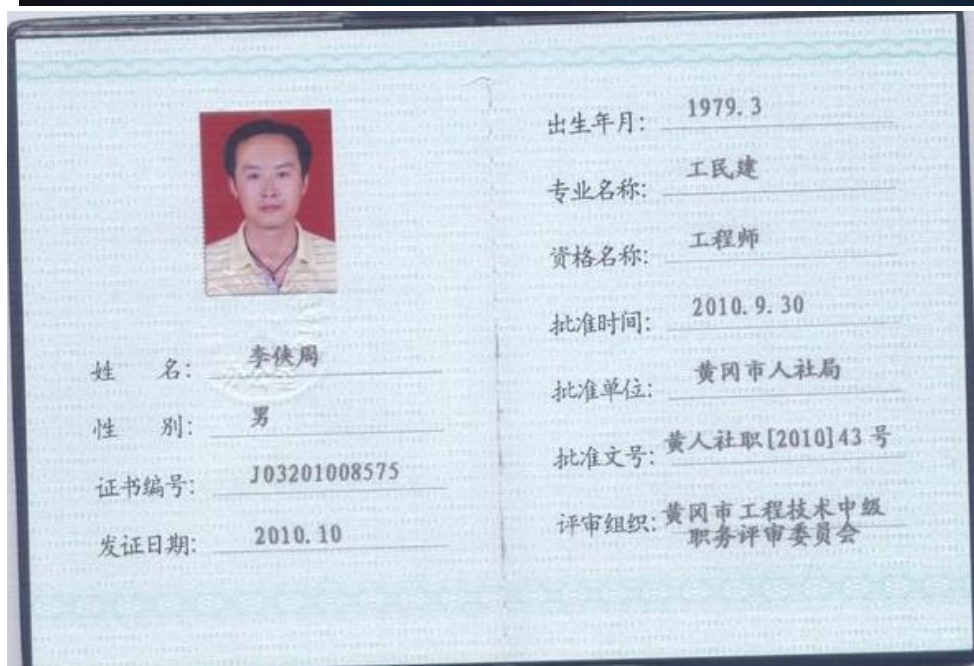 姓 名: 李侠周
性 别: 男
证书编号: J03201008575
发证日期: 2010.10
出生年月: 1979.3
专业名称: 工民建
资格名称: 工程师
批准时间: 2010.9.30
批准单位: 黄冈市人社局
批准文号: 黄人社职[2010]43号
评审组织: 黄冈市工程技术中级
职务评审委员会